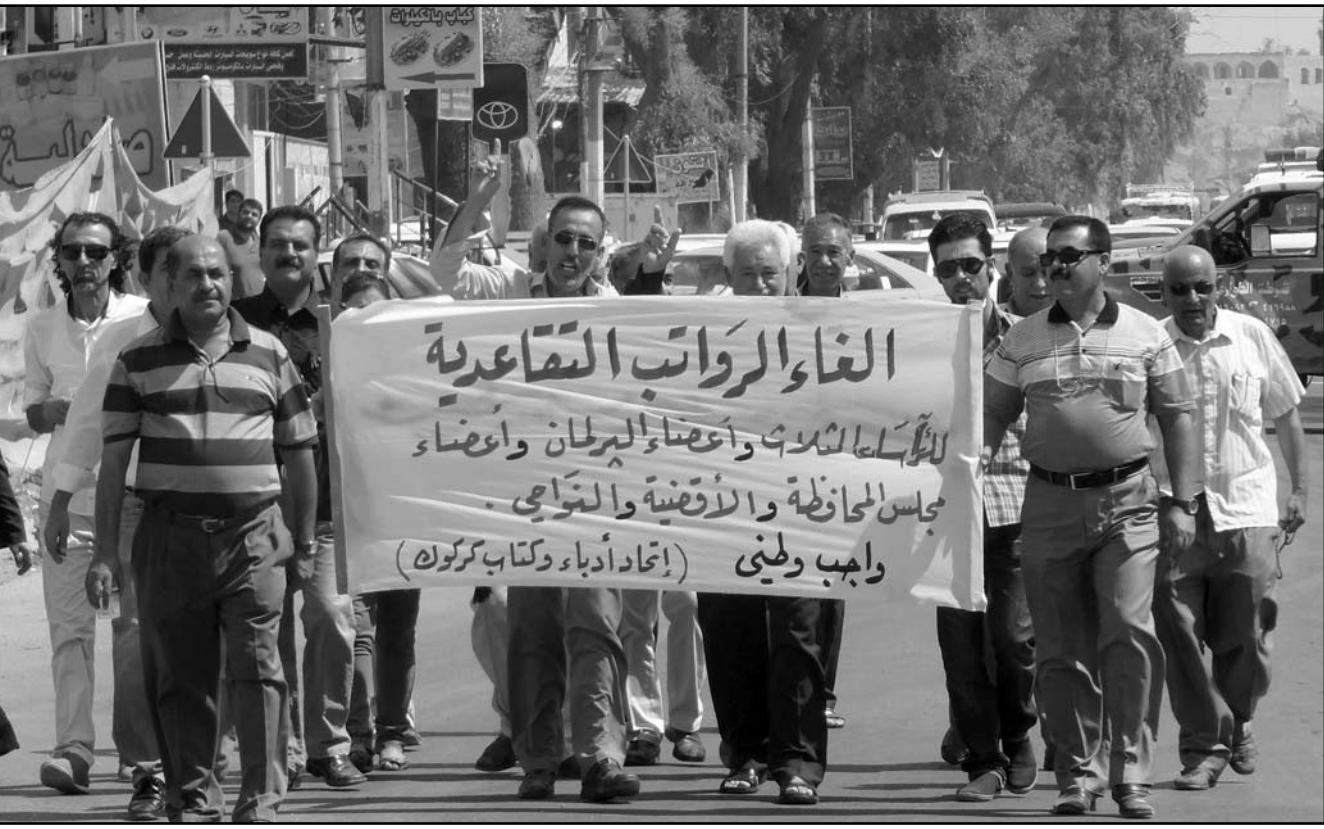 كباب بالكيلوات
صيدلية
الغاء الرَواتب التقاعدية
للرِّئاسات الثلاث وأعضاء البرلمان وأعضاء
مجلس المحافظة والأقضية والنَواحي .
واجب وطني (إتحاد أدباء وكتاب كركوك)